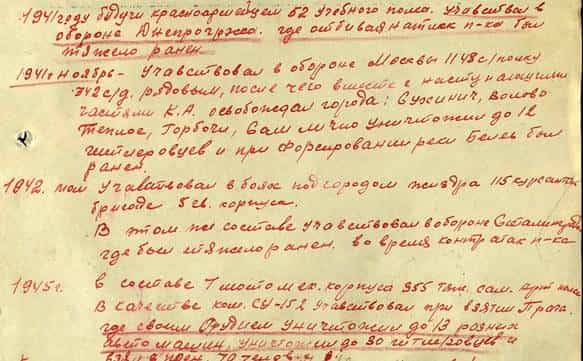 1941 году будучи красноармейцем 62 учебного полка. Учавствовал в
обороне Днепрогрэса. где отбивая натиск п-ка был
тяжело ранен.
1941г ноябрь - Учавствовал в обороне Москвы 1148 с/полку
342 с/д. рядовым, после чего вместе с наступающими
частями К.А. освобождал города: Сухинич, Волово
Теплое, Горбочи, Сам лично уничтожил до 12
гитлеровцев и при форсировании реки Белев был
ранен.
1942. май Учавствовал в боях под городом жиздра 115 курсантск
бригаде 5 гв. корпуса.
В этом же составе учавствовал в обороне Сталинграда
где был тяжело ранен. во время контратак п-ка
1945г. в составе 7 мото мех. корпуса 355 тяж. сам. арт полка
В качестве ком. СУ-152 учавствовал при взятии Прага.
где своим Орудием уничтожил до 13 разных
авто машин, уничтожил до 30 гитлеровцев и
взял в плен 70 человек